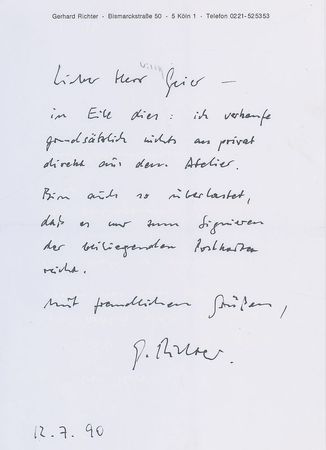 Gerhard Richter - Bismarckstraße 50 - 5 Köln 1 - Telefon 0221-525353
Lieber Herr Geier —
in Eile dies: ich verkaufe
grundsätzlich nichts an privat
direkt aus dem Atelier.
Bin auch so überlastet,
daß es nur zum Signieren
der beiliegenden Postkarten
reicht.
Mit freundlichen Grüßen,
G. Richter.
12.7.90